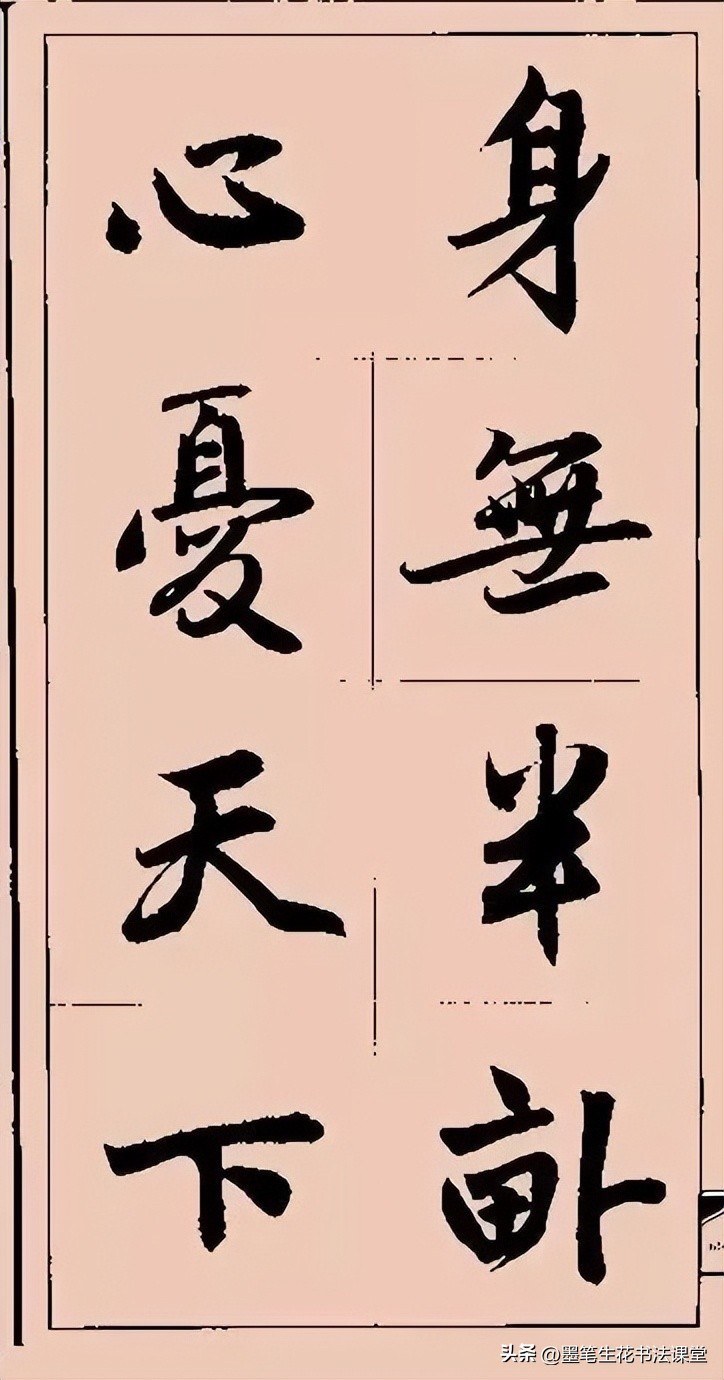 身無半畝
心憂天下
头条 @墨笔生花书法课堂